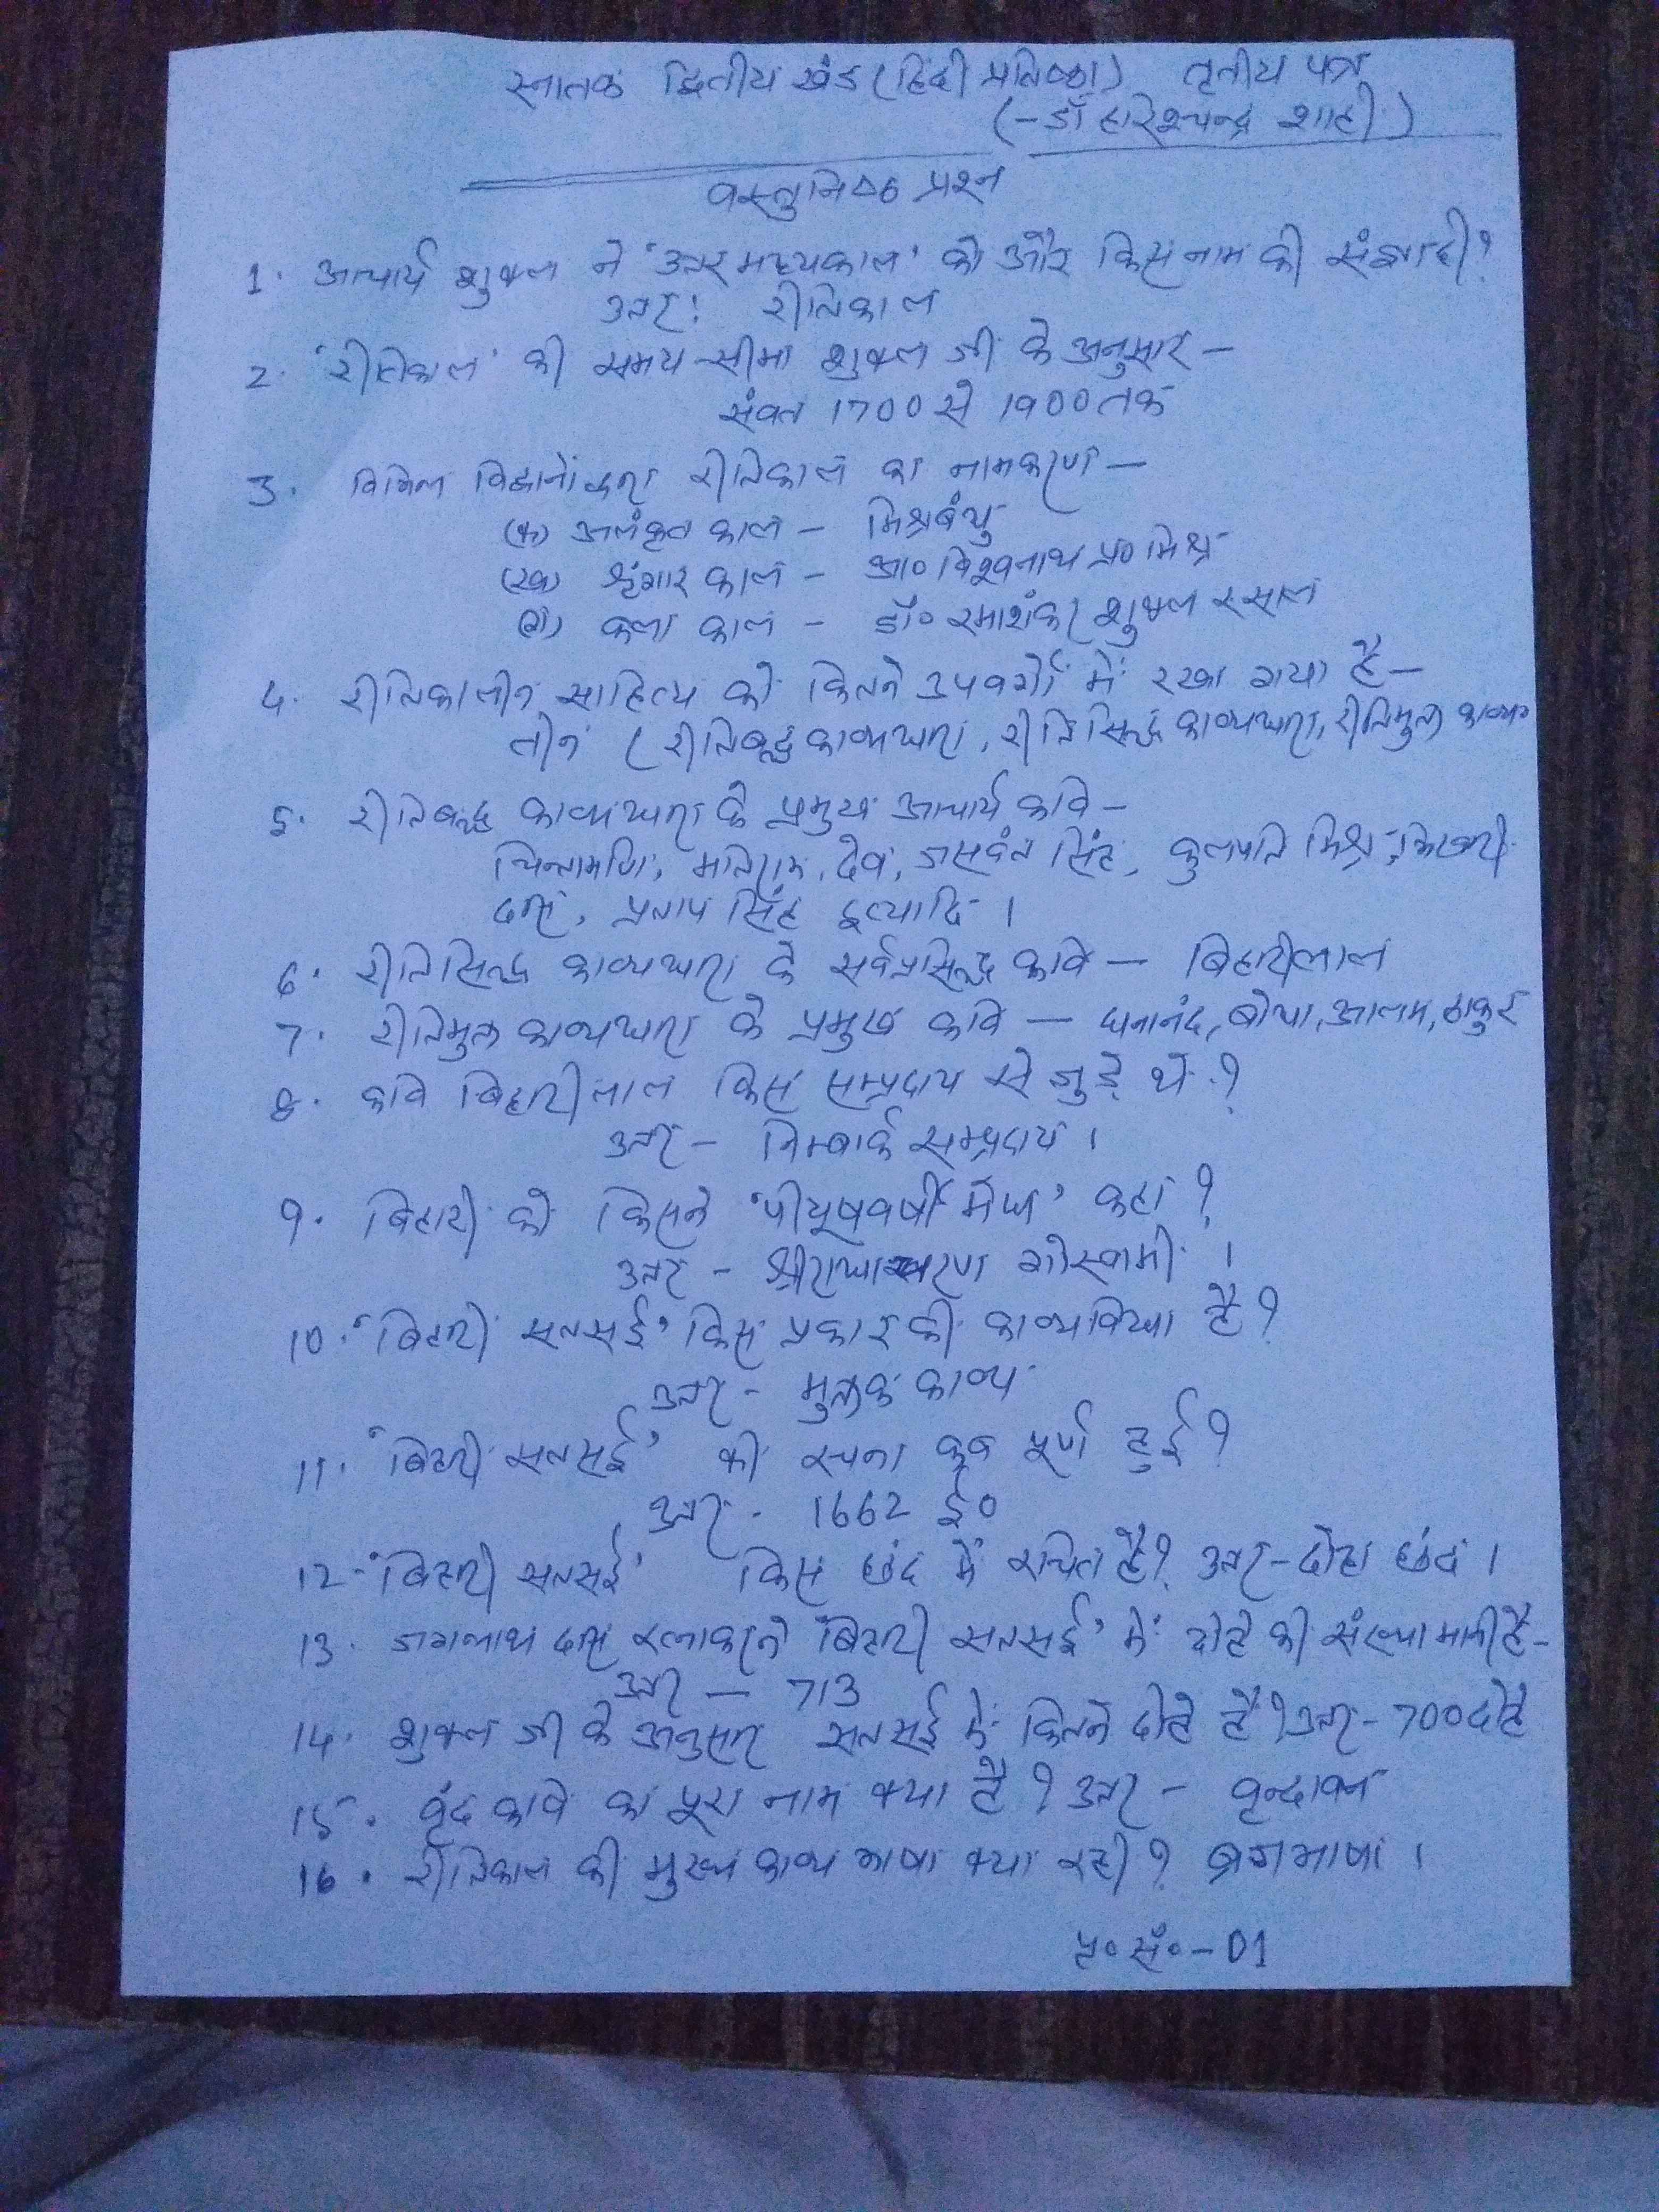 स्नातक द्वितीय खंड (हिंदी प्रतिष्ठा) तृतीय पत्र
(-डॉ हरिश्चन्द्र शाही)
वस्तुनिष्ठ प्रश्न
1. आचार्य शुक्ल ने 'उत्तर मध्यकाल' को और किस नाम की संज्ञा दी?
उत्तर: रीतिकाल
2. 'रीतिकाल' की समय-सीमा शुक्ल जी के अनुसार -
संवत 1700 से 1900 तक
3. विभिन्न विद्वानों द्वारा रीतिकाल का नामकरण -
(क) अलंकृत काल - मिश्रबंधु
(ख) श्रृंगार काल - आ० विश्वनाथ प्र० मिश्र
(ग) कला काल - डॉ० रमाशंकर शुक्ल रसाल
4. रीतिकालीन साहित्य को कितने उपवर्गों में रखा गया है -
तीन (रीतिबद्ध काव्यधारा, रीतिसिद्ध काव्यधारा, रीतिमुक्त काव्य॰
5. रीतिबद्ध काव्यधारा के प्रमुख आचार्य कवि -
चिन्तामणि, मतिराम, देव, जसवंत सिंह, कुलपति मिश्र, भिखारी
दास, प्रताप सिंह इत्यादि ।
6. रीतिसिद्ध काव्यधारा के सर्वप्रसिद्ध कवि - बिहारीलाल
7. रीतिमुक्त काव्यधारा के प्रमुख कवि - घनानंद, बोधा, आलम, ठाकुर
8. कवि बिहारीलाल किस सम्प्रदाय से जुड़े थे ?
उत्तर - निम्बार्क सम्प्रदाय ।
9. बिहारी को किसने 'पीयूषवर्षी मेघ' कहा ?
उत्तर - श्रीराधाचरण गोस्वामी ।
10. 'बिहारी सतसई' किस प्रकार की काव्यविधा है ?
उत्तर - मुक्तक काव्य
11. 'बिहारी सतसई' की रचना कब पूर्ण हुई ?
उत्तर - 1662 ई०
12. 'बिहारी सतसई' किस छंद में रचित है ? उत्तर - दोहा छंद ।
13. जगन्नाथ दास रत्नाकर ने 'बिहारी सतसई' में दोहे की संख्या मानी है -
उत्तर - 713
14. शुक्ल जी के अनुसार सतसई में कितने दोहे हैं ? उत्तर - 700 दोहे
15. वृंद कवि का पूरा नाम क्या है ? उत्तर - वृन्दावन
16. रीतिकाल की मुख्य काव्य भाषा क्या रही ? ब्रजभाषा ।
पृ० सं० - 01